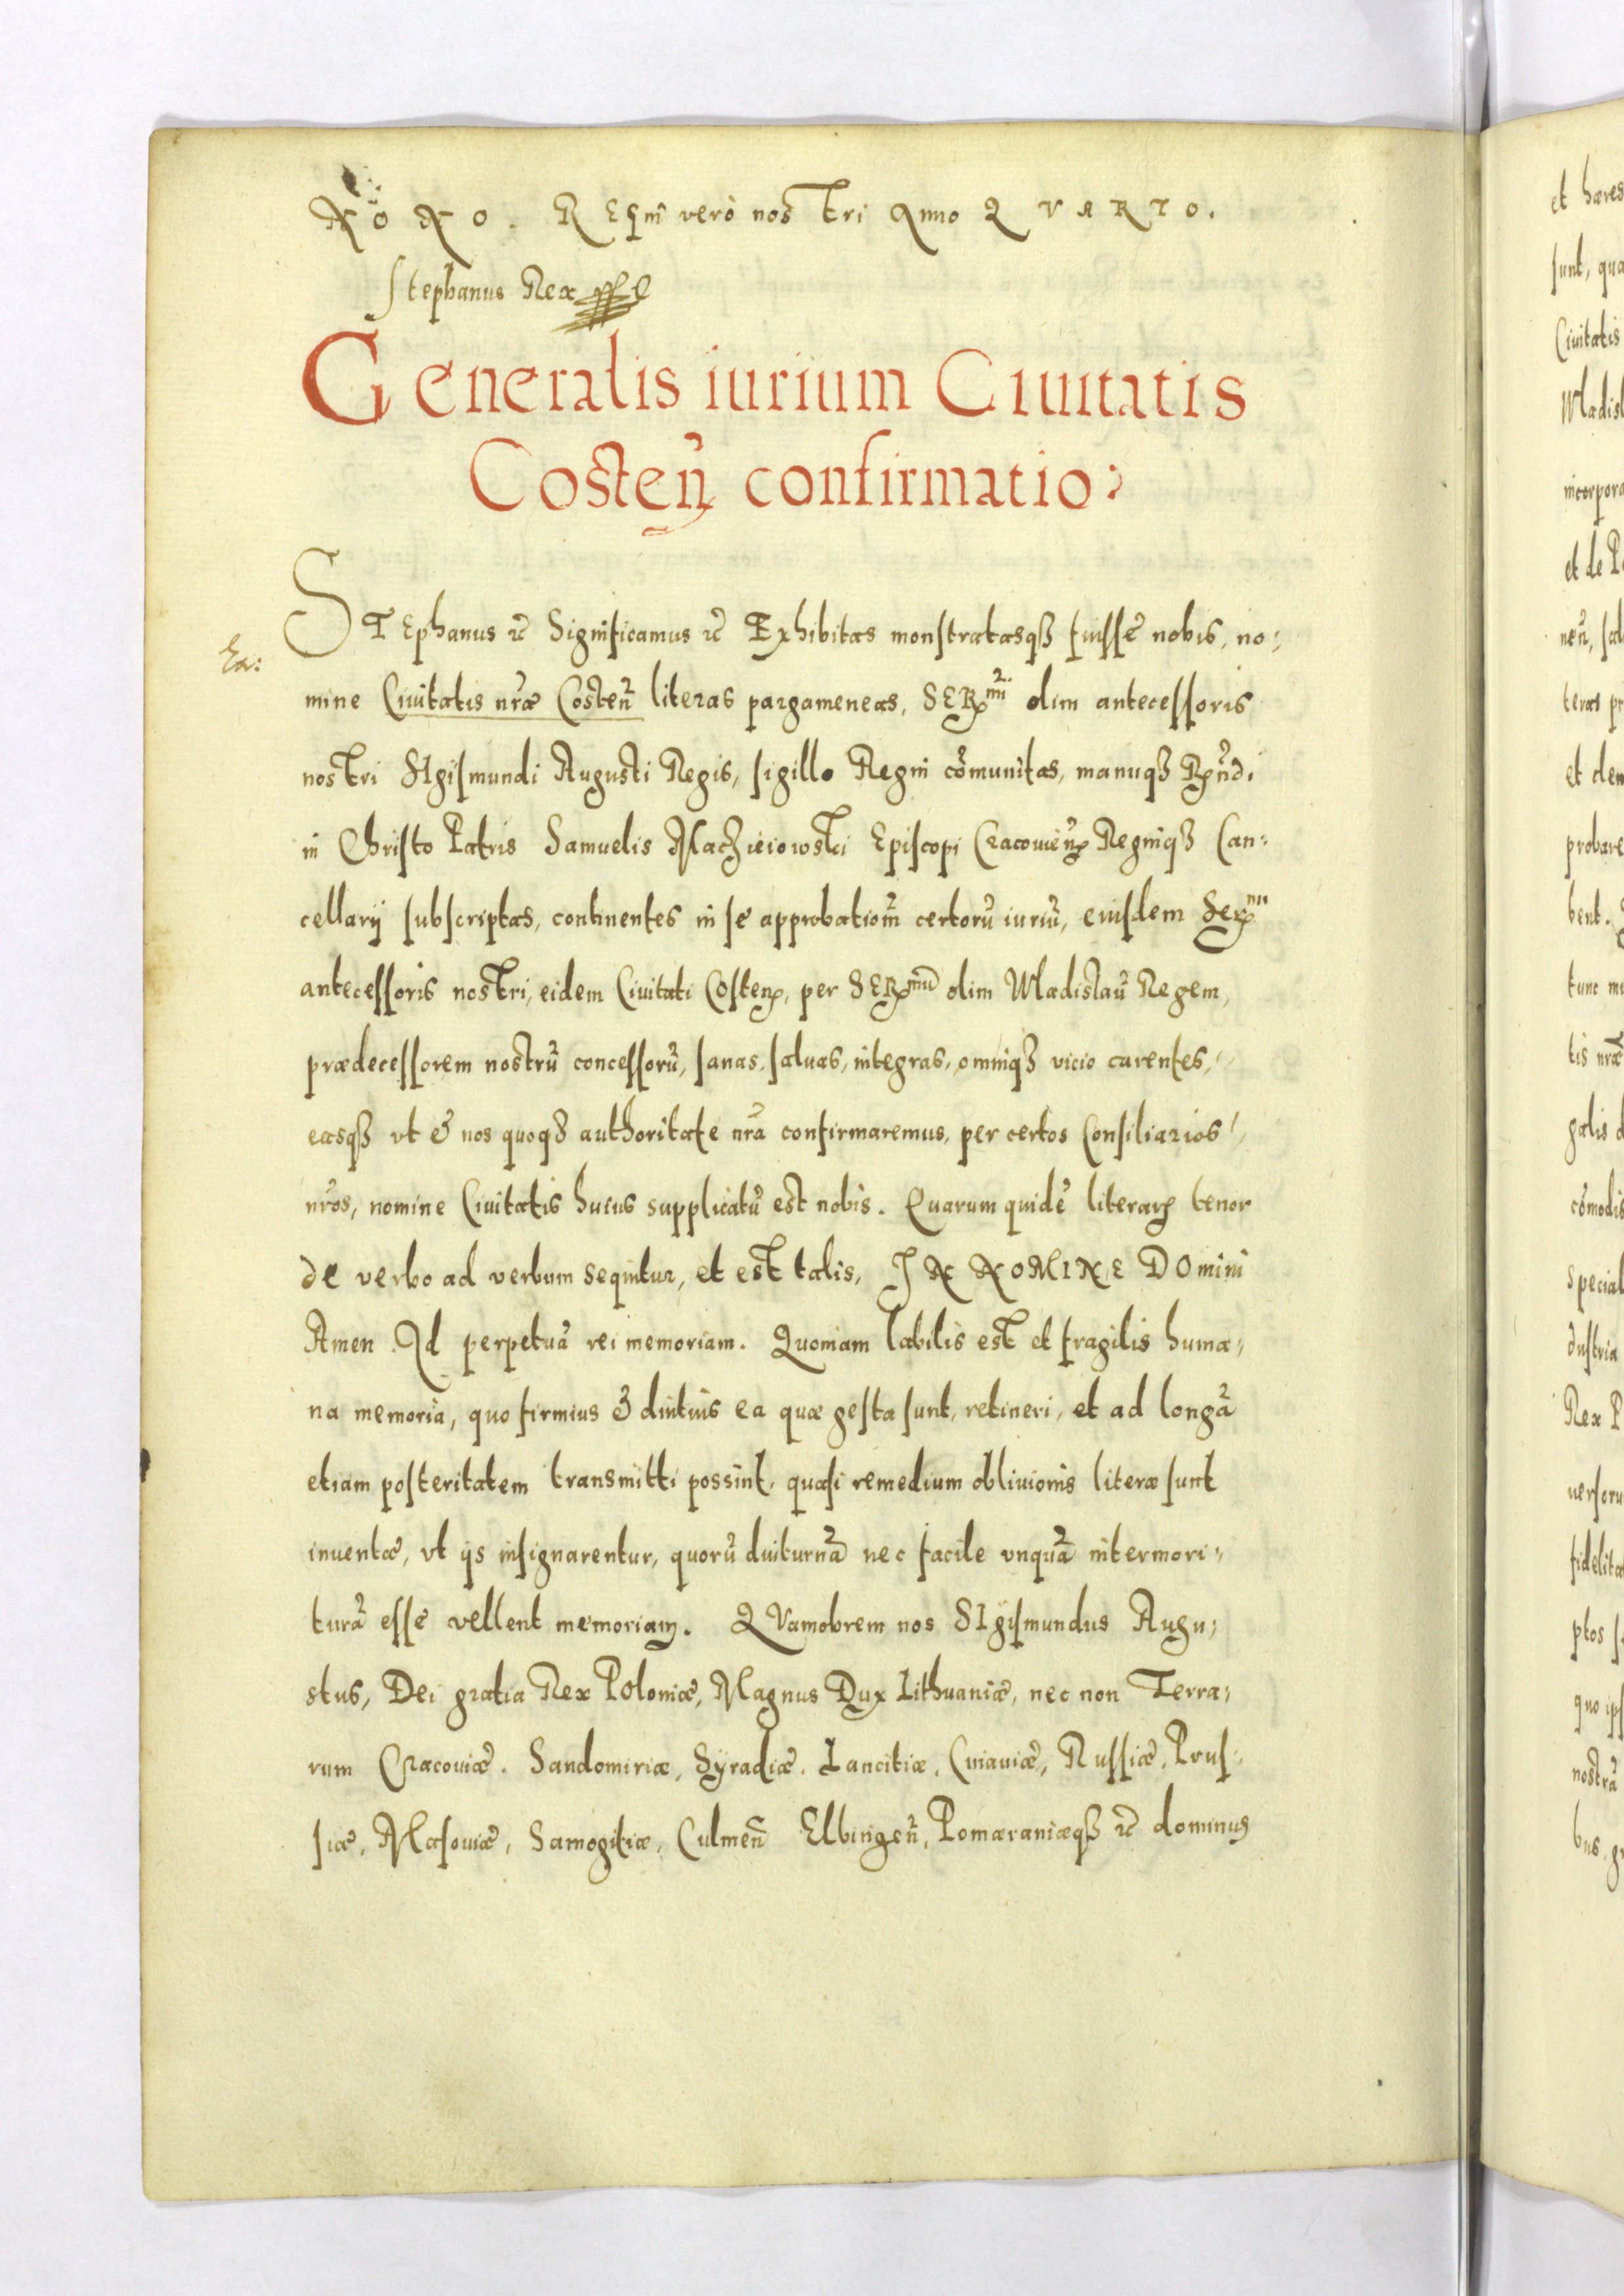 NoNo. REgni verò nostri Anno QVARTO.
Stephanus Rex
Generalis iurium Ciuitatis
Costen̄ confirmatio
STEphanus ꝛc̄ Significamus ꝛc̄ Exhibitas monstratasqȝ fuisse nobis, no:
mine Ciuitatis nr̃æ Costen̄ literas pargameneas, SERmi olim antecessoris
nostri SIgismundi Augusti Regis, sigillo Regni cõmunitas, manuqȝ Rnd.
in Christo Patris Samuelis Maczieiowski Episcopi Cracouien̄ Regniqȝ Can:
cellarij subscriptas, continentes in se approbationẽ certorũ iuriũ, eiusdem Sermi
antecessoris nostri, eidem Ciuitati Costen̄, per SERmũ olim Wladislaũ Regem,
prædecessorem nostrũ concessorũ, sanas, saluas, integras, omniqȝ vicio carentes,
easqȝ vt & nos quoqȝ authoritate nr̃a confirmaremus, per certos Consiliarios
nr̃os, nomine Ciuitatis huius supplicatũ est nobis. Quarum quidẽ literarꝝ tenor
de verbo ad verbum sequitur, et est talis, IN NOMINE DOmini
Amen Ad perpetuã rei memoriam. Quoniam labilis est et fragilis huma:
na memoria, quo firmius & diutius ea quæ gesta sunt, retineri, et ad longã
etiam posteritatem transmitti possint, quasi remedium obliuionis literæ sunt
inuentæ, vt ijs insignarentur, quorũ diuturnã nec facile vnquã intermori:
turã esse vellent memoriam. QVamobrem nos SIgismundus Augu:
stus, Dei gratia Rex Poloniæ, Magnus Dux Lithuaniæ, nec non Terra:
rum Cracouiæ, Sandomiriæ, Syradiæ, Lancitiæ, Cuiauiæ, Russiæ, Prus:
siæ, Masouiæ, Samogitiæ, Culmen̄ Elbingen̄, Pomæraniæqȝ ꝛc̄ dominus